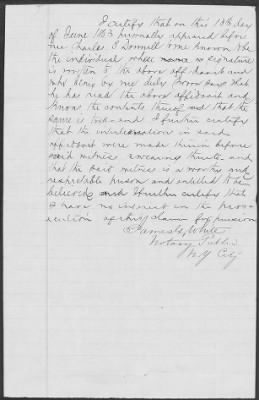 I certify that on this 13th day
of June 1863 personally appeared before
me Charles O'Donnell to me known to be
the individual whose name or signature
is written to the above affidavit and
who being by me duly sworn says that
he has read the above affidavit and
know the contents thereof and that the
same is true and I further certify
that the interlineation in said
affidavit were made therein before
said witness swearing thereto, and
that the said witness is a worthy and
respectable person and entitled to be
believed and I further certify that
I have no interest in the prose-
cution of this claim for pension
James White
Notary Public
N.Y. City